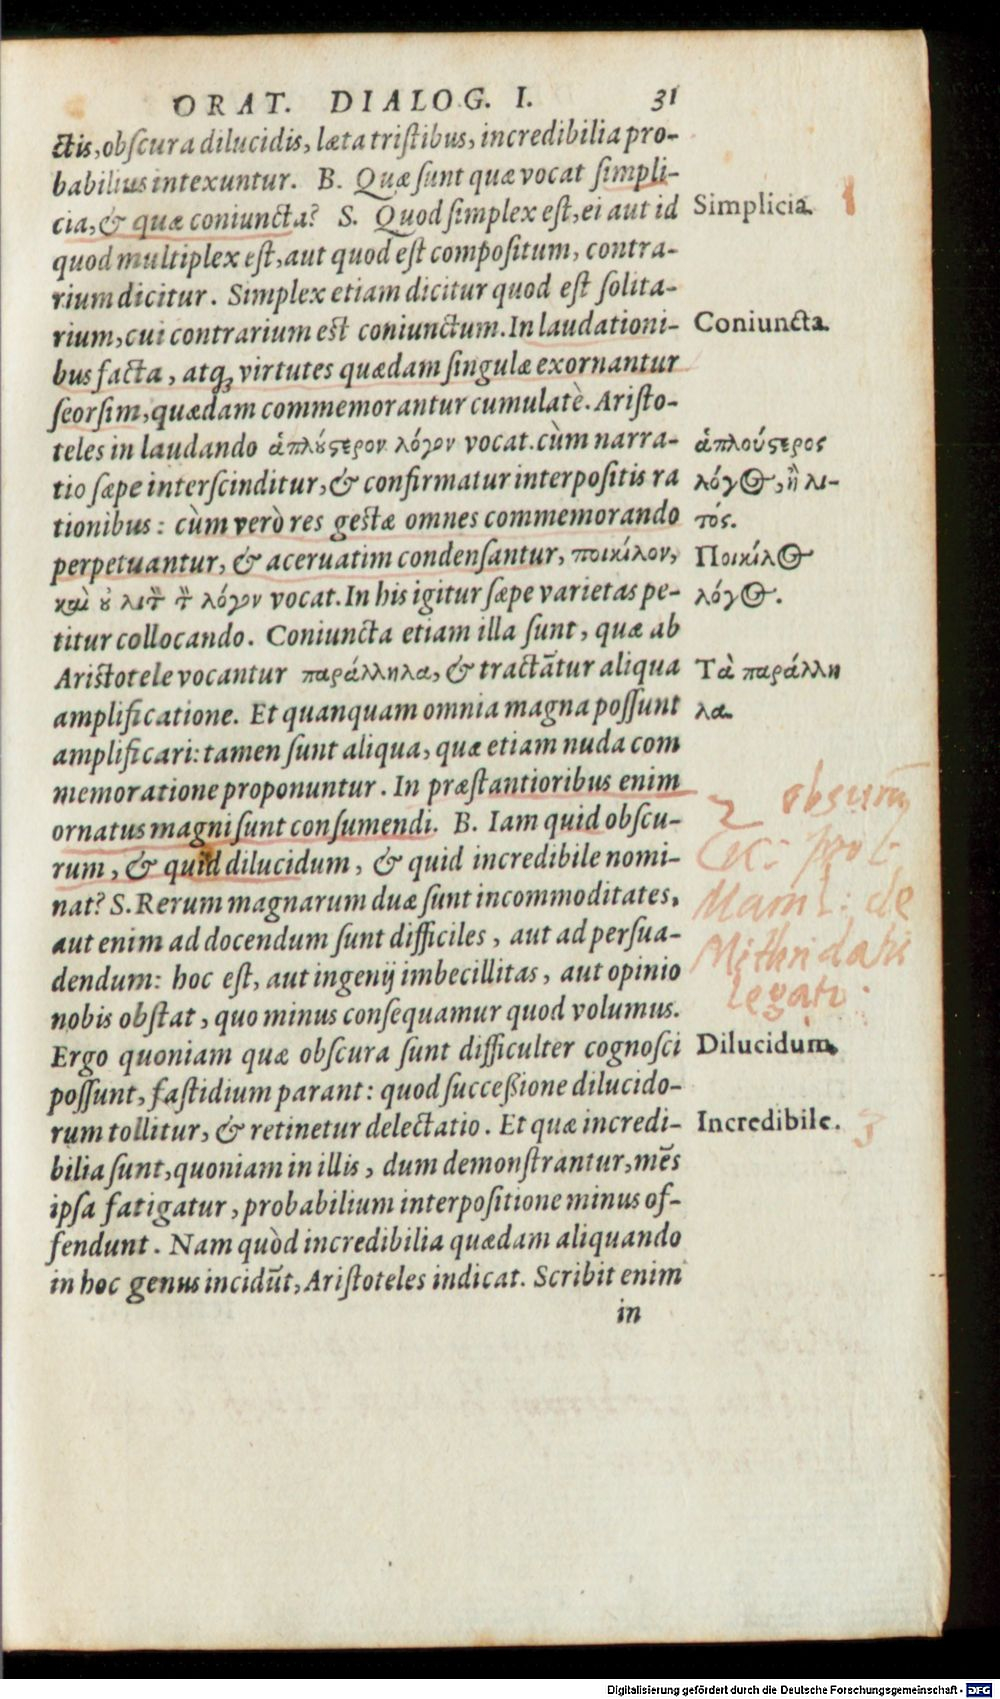 ORAT. DIALOG. I. 31
ctis, obſcura dilucidis, læta triſtibus, incredibilia pro-
babilius intexuntur. B. Quæ ſunt quæ vocat ſimpli-
cia, & quæ coniuncta? S. Quod ſimplex eſt, ei aut id
Simplicia.
1
quod multiplex eſt, aut quod eſt compoſitum, contra-
rium dicitur. Simplex etiam dicitur quod eſt ſolita-
rium, cui contrarium eſt coniunctum. In laudationi-
Coniuncta.
bus facta, atq; virtutes quædam ſingulæ exornantur
ſeorſim, quædam commemorantur cumulatè. Ariſto-
teles in laudando ἁπλούςερον λόγον vocat. cùm narra-
ἁπλούςερος
tio ſæpe interſcinditur, & confirmatur interpoſitis ra
λόγος, ἢ λι-
tionibus: cùm verò res geſtæ omnes commemorando
τός.
perpetuantur, & aceruatim condenſantur, ποικίλον,
Ποικίλος
καὶ οὐ λιτὸν τὸν λόγον vocat. In his igitur ſæpe varietas pe-
λόγος.
titur collocando. Coniuncta etiam illa ſunt, quæ ab
Ariſtotele vocantur παράλληλα, & tractātur aliqua
Τὰ παράλλη
amplificatione. Et quanquam omnia magna poſſunt
λα.
amplificari: tamen ſunt aliqua, quæ etiam nuda com
memoratione proponuntur. In præſtantioribus enim
ornatus magni ſunt conſumendi. B. Iam quid obſcu-
2
rum, & quid dilucidum, & quid incredibile nomi-
nat? S. Rerum magnarum duæ ſunt incommoditates,
aut enim ad docendum ſunt difficiles, aut ad perſua-
de
Mithridatis
dendum: hoc eſt, aut ingenij imbecillitas, aut opinio
legato.
nobis obſtat, quo minus conſequamur quod volumus.
Ergo quoniam quæ obſcura ſunt difficulter cognoſci
Dilucidum.
poſſunt, faſtidium parant: quod ſucceßione dilucido-
rum tollitur, & retinetur delectatio. Et quæ incredi-
Incredibile.
3
bilia ſunt, quoniam in illis, dum demonſtrantur, mēs
ipſa fatigatur, probabilium interpoſitione minus of-
fendunt. Nam quòd incredibilia quædam aliquando
in hoc genus incidūt, Ariſtoteles indicat. Scribit enim
in
Digitalisierung gefördert durch die Deutsche Forschungsgemeinschaft - DFG